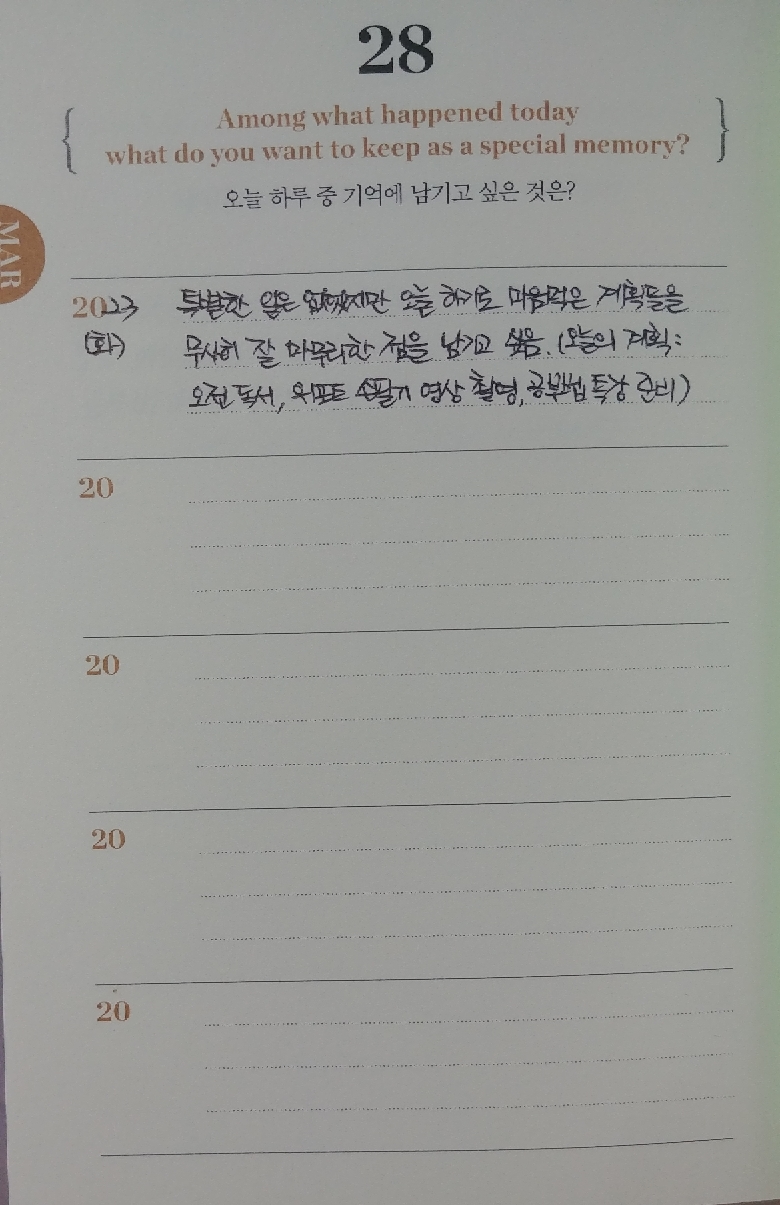 28
Among what happened today
what do you want to keep as a special memory?
오늘 하루 중 기억에 남기고 싶은 것은?
MAR
2023 특별한 일은 없었지만 오늘 하기로 마음먹은 계획들을
(화) 무사히 잘 마무리한 점을 남기고 싶음. (오늘의 계획:
오전 독서, 손필기 영상 촬영, 공부법 특강 준비)
20
20
20
20